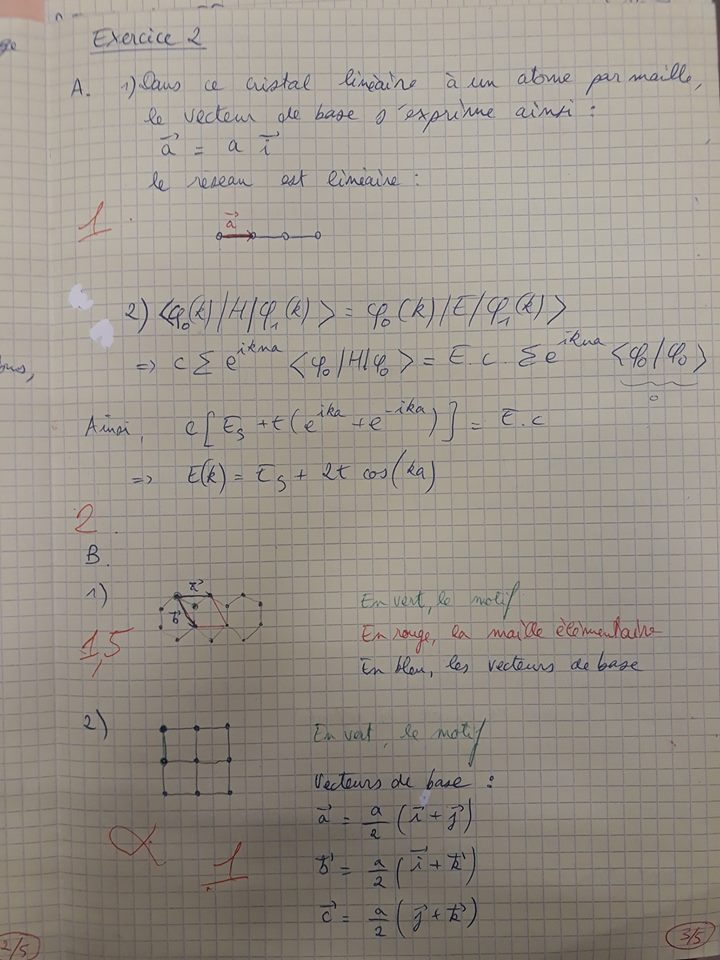 Exercice 2
A. 1) Dans ce cristal linéaire à un atome par maille,
le vecteur de base s'exprime ainsi :
a⃗ = a i⃗
le réseau est linéaire :
1
a⃗
2) <φ₀(k)/H/φ₁(k)> = φ₀(k)/E/φ₁(k)>
=> c Σ e^{ikna} <φ₀/H/φ₀> = E.c. Σ e^{ikna} <φ₀/φ₀>
0
Ainsi, c[E_s + t(e^{ika} + e^{-ika})] = E.c
=> E(k) = E_s + 2t cos(ka)
2
B.
1) a⃗ En vert, le motif
b⃗ En rouge, la maille élémentaire
1,5 En bleu, les vecteurs de base
2) En vert, le motif
Vecteurs de base :
a⃗ = a/2 (i⃗ + j⃗)
α 1 b⃗ = a/2 (i⃗ + k⃗)
c⃗ = a/2 (j⃗ + k⃗)
2/5 3/5